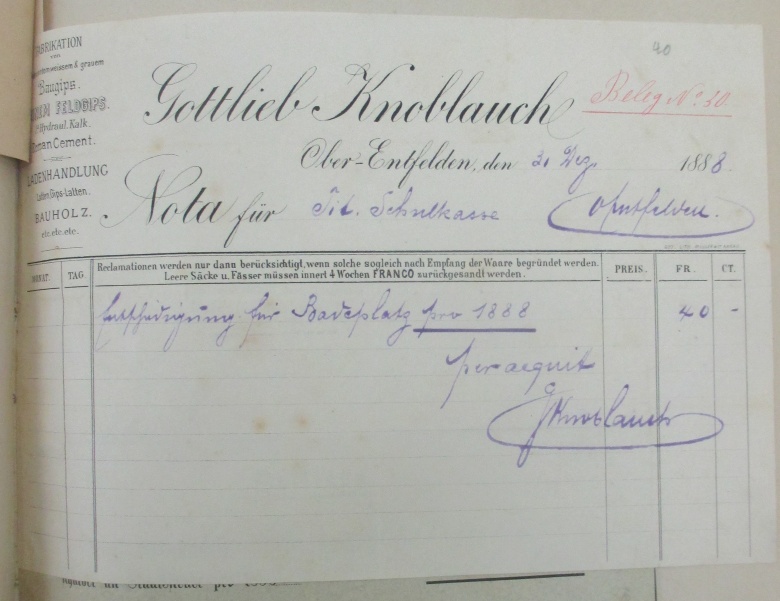 90
FABRIKATION
von
weissem & grauem
Baugips.
FELDGIPS.
Hydraul. Kalk.
Roman Cement.
LADENHANDLUNG
Latten, Gips-Latten.
BAUHOLZ.
etc. etc. etc.
Gottlieb Knoblauch
Beleg No. 30.
Ober-Entfelden, den 31 Dez. 1888
Nota für Tit. Schulkasse Obentfelden.
MONAT. TAG. Reclamationen werden nur dann berücksichtigt, wenn solche sogleich nach Empfang der Waare begründet werden. PREIS. FR. CT.
Leere Säcke u. Fässer müssen innert 4 Wochen FRANCO zurückgesandt werden.
Entschädigung für Badeplatz pro 1888 40 -
per acquit
G Knoblauch